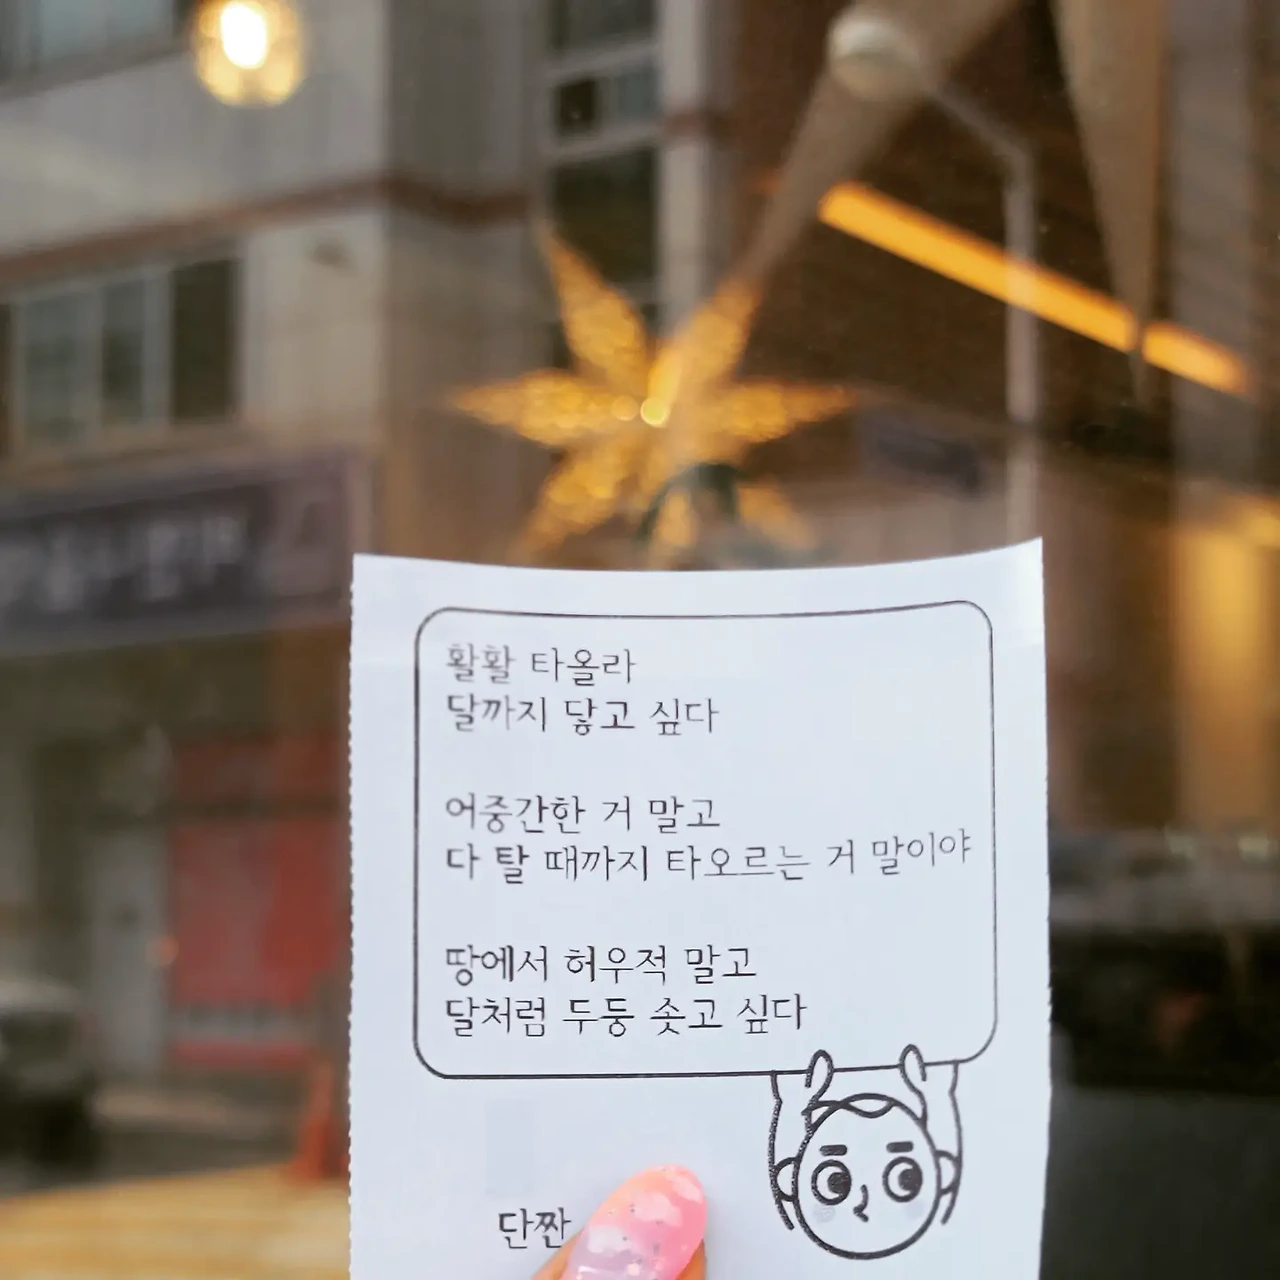 활활 타올라
달까지 닿고 싶다
어중간한 거 말고
다 탈 때까지 타오르는 거 말이야
땅에서 허우적 말고
달처럼 두둥 솟고 싶다
단짠